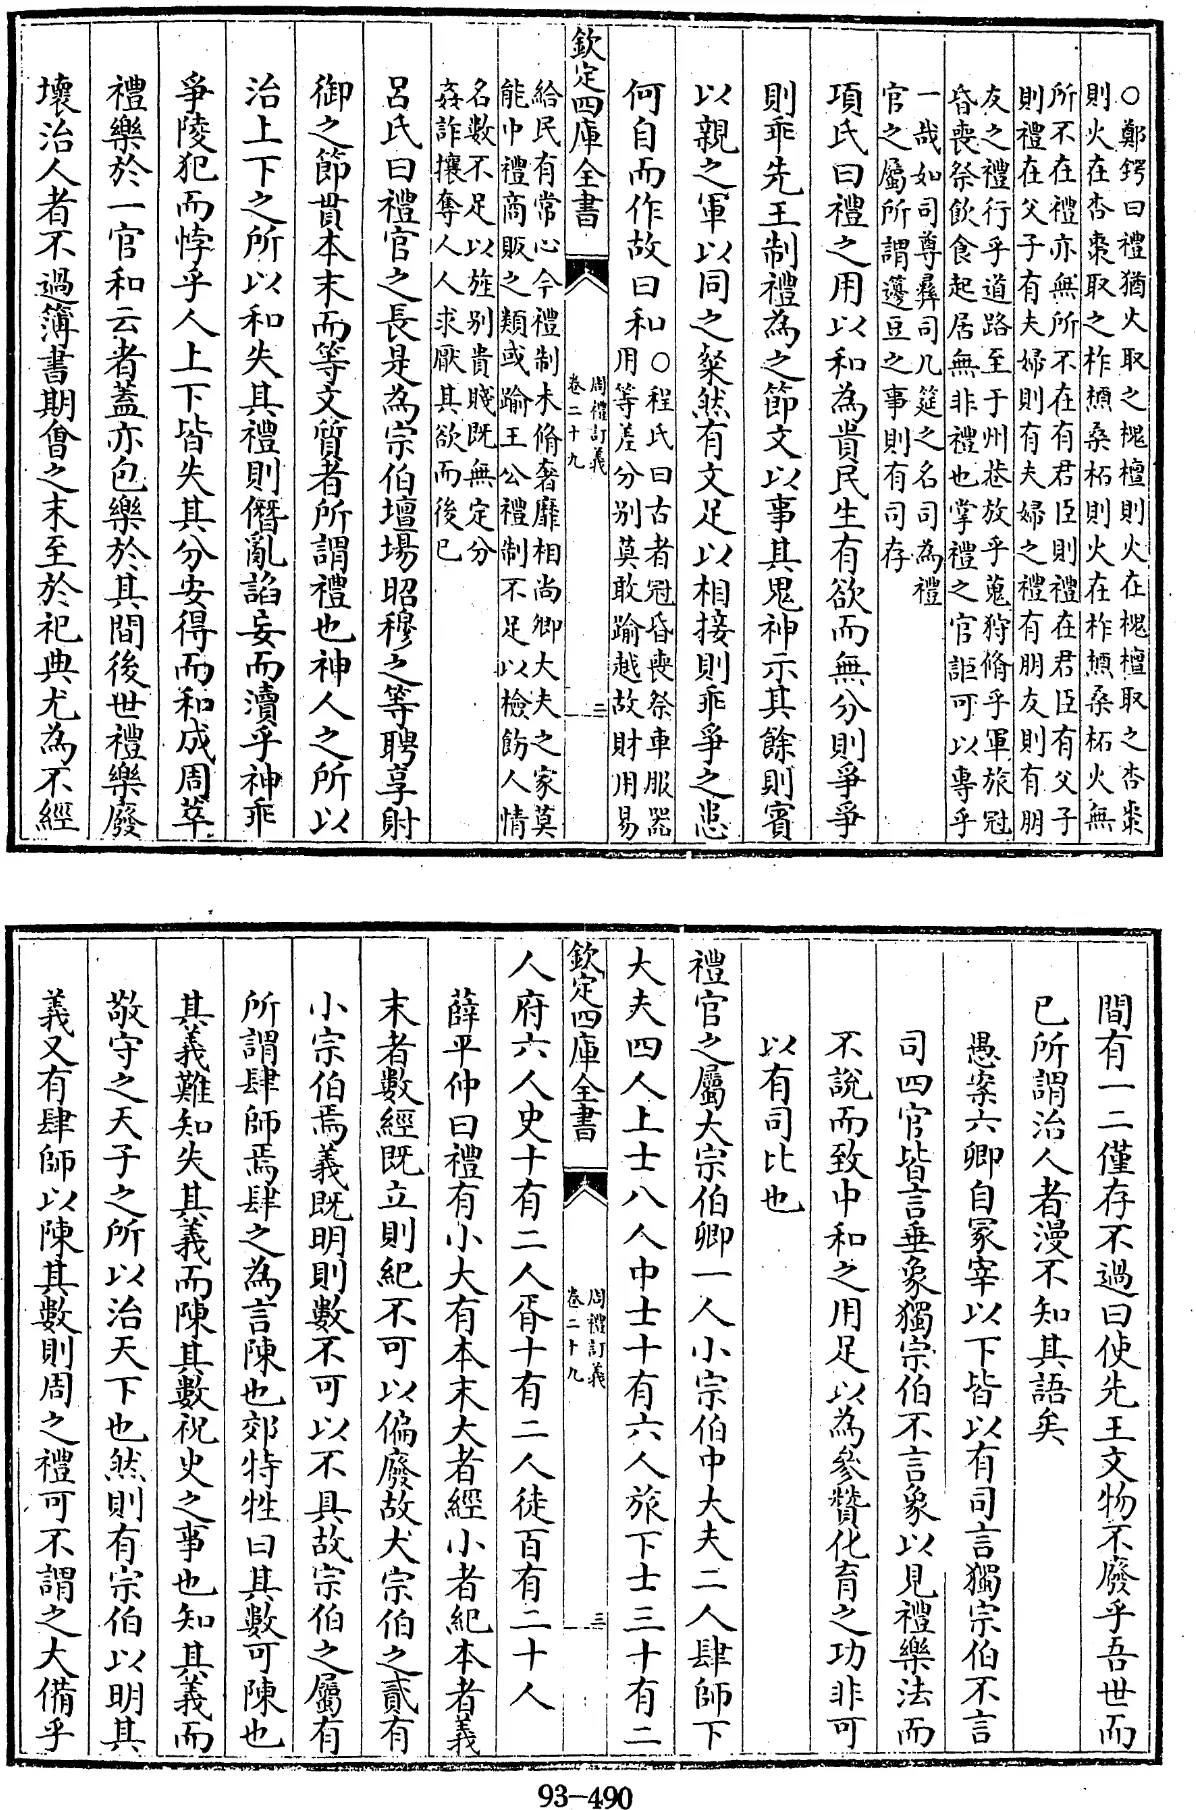 ○鄭鍔曰禮猶火取之槐檀則火在槐檀取之杏棗
則火在杏棗取之柞槱桑柘則火在柞槱桑柘火無
所不在禮亦無所不在有君臣則禮在君臣有父子
則禮在父子有夫婦則有夫婦之禮有朋友則有朋
友之禮行乎道路至于州巷放乎蒐狩脩乎軍旅冠
昏喪祭飲食起居無非禮也掌禮之官詎可以專乎
一哉如司尊彞司几筵之名司為禮
官之屬所謂籩豆之事則有司存
項氏曰禮之用以和為貴民生有欲而無分則爭爭
則乖先王制禮為之節文以事其鬼神示其餘則賓
以親之軍以同之粲然有文足以相接則乖爭之患
何自而作故曰和○程氏曰古者冠昏喪祭車服器
用等差分别莫敢踰越故財用易
欽定四庫全書
周禮訂義
卷二十九
二
給民有常心今禮制未脩奢靡相尚卿大夫之家莫
能中禮商販之類或踰王公禮制不足以檢飭人情
名數不足以旌别貴賤既無定分
姦詐攘奪人人求厭其欲而後已
呂氏曰禮官之長是為宗伯壇場昭穆之等聘享射
御之節貫本末而等文質者所謂禮也神人之所以
治上下之所以和失其禮則僭亂諂妄而瀆乎神乖
爭陵犯而悖乎人上下皆失其分安得而和成周萃
禮樂於一官和云者蓋亦包樂於其間後世禮樂廢
壞治人者不過簿書期會之末至於祀典尤為不經
間有一二僅存不過曰使先王文物不廢乎吾世而
已所謂治人者漫不知其語矣
愚案六卿自冢宰以下皆以有司言獨宗伯不言
司四官皆言垂象獨宗伯不言象以見禮樂法而
不說而致中和之用足以為參贊化育之功非可
以有司比也
禮官之屬大宗伯卿一人小宗伯中大夫二人肆師下
大夫四人上士八人中士十有六人旅下士三十有二
欽定四庫全書
周禮訂義
卷二十九
三
人府六人史十有二人胥十有二人徒百有二十人
薛平仲曰禮有小大有本末大者經小者紀本者義
末者數經既立則紀不可以偏廢故大宗伯之貳有
小宗伯焉義既明則數不可以不具故宗伯之屬有
所謂肆師焉肆之為言陳也郊特牲曰其數可陳也
其義難知失其義而陳其數祝史之事也知其義而
敬守之天子之所以治天下也然則有宗伯以明其
義又有肆師以陳其數則周之禮可不謂之大備乎
93-490